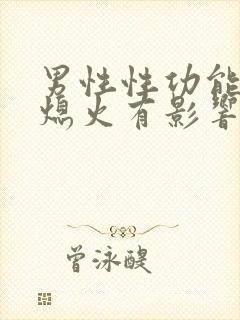 男性性功能
熄火有影響
曾泳醍